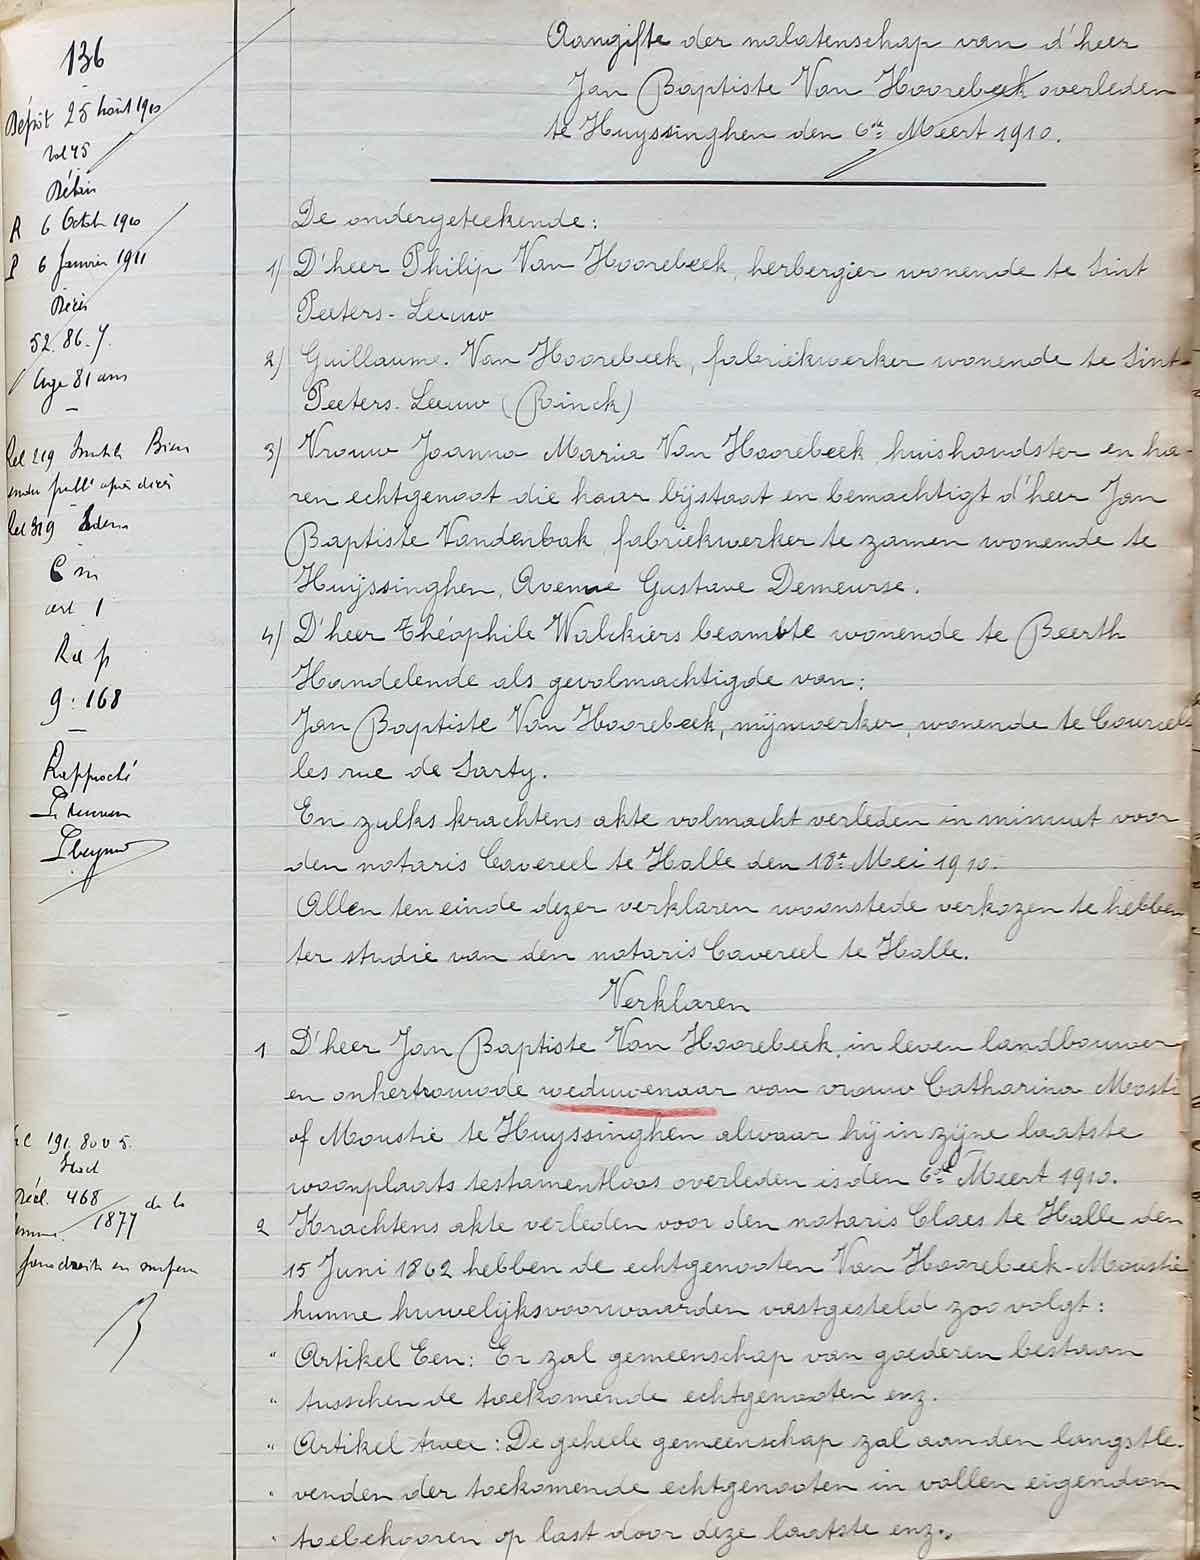 136
Dépôt 25 Août 1910
Vol 45
Décès
52.86.7.
Age 81 ans
R 6 Octob 1910
P 6 Janvier 1911
Aangifte der nalatenschap van d'heer
Jan Baptiste Van Hoorebeek overleden
te Huyssinghen den 6de Meert 1910.
De ondergeteekende:
1) D'heer Philip Van Hoorebeek, herbergier wonende te Sint
Peeters-Leeuw
2) Guillaume. Van Hoorebeek, fabriekwerker wonende te Sint-
Peeters-Leeuw (Rinck)
3) Vrouw Joanna Maria Van Hoorebeek, huishoudster en ha-
ren echtgenoot die haar bijstaat en bemachtigt d'heer Jan
Baptiste Vandenbak, fabriekwerker te zamen wonende te
Huijssinghen, Avenue Gustave Demeurse.
4) D'heer Théophile Walckiers beambte wonende te Beerth
Handelende als gevolmachtigde van:
Jan Baptiste Van Hoorebeek, mijnwerker, wonende te Courcel-
les rue de Sarty.
En zulks krachtens akte volmacht verleden in minuut voor
den notaris Cavereel te Halle den 18e Mei 1910.
Allen ten einde dezer verklaren woonstede verkozen te hebben
ter studie van den notaris Cavereel te Halle.
Verklaren
1 D'heer Jan Baptiste Van Hoorebeek, in leven landbouwer
en onhertrouwde weduwenaar van vrouw Catharina Mosti
of Moustie te Huyssinghen alwaar hij in zijne laatste
woonplaats testamentloos overleden is den 6de Meert 1910.
2 Krachtens akte verleden voor den notaris Claes te Halle den
15 Juni 1862 hebben de echtgenooten Van Hoorebeek-Moustie
hunne huwelijksvoorwaarden vastgesteld zoo volgt:
" Artikel Een: Er zal gemeenschap van goederen bestaan
" tusschen de toekomende echtgenooten enz.
" Artikel twee: De geheele gemeenschap zal aan den langstle-
" venden der toekomende echtgenooten in vollen eigendom
" toebehooren op last door deze laatste enz.
art 1
9:168
Rapproché
191.800 5.
468
1877
de la